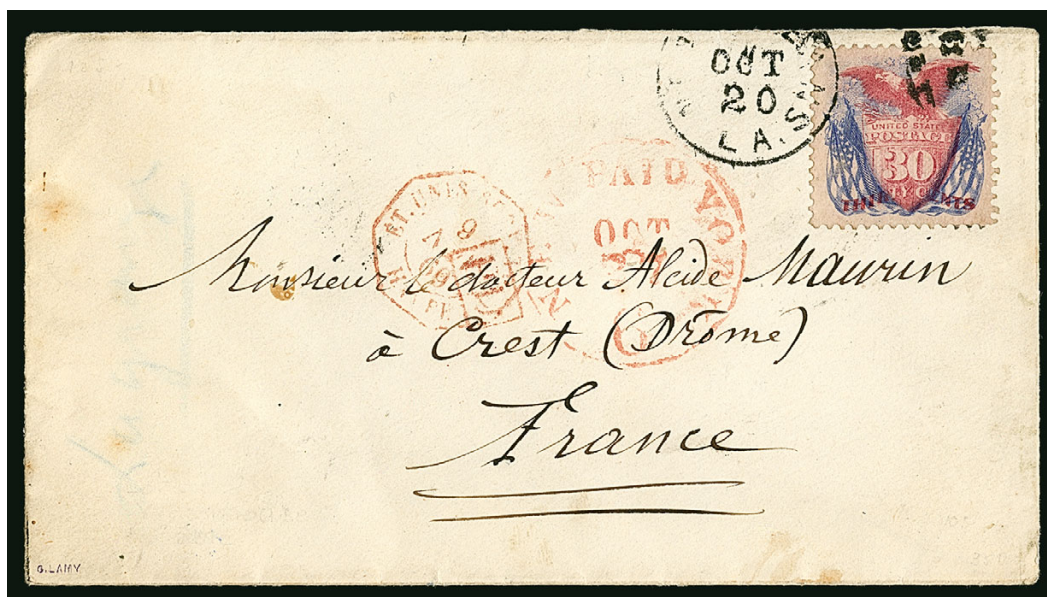 OCT
20
LA.
UNITED STATES
POSTAGE
30
THIRTY CENTS
PAID
OCT
ET. UNIS
9
Monsieur le docteur Alcide Maurin
à Crest (Drôme)
France
G. LAMY